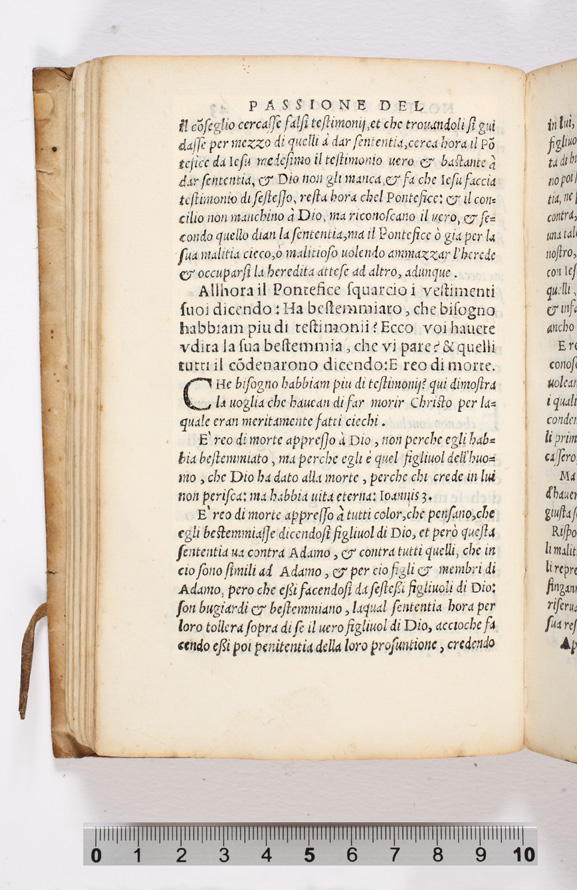 PASSIONE DEL
il cõseglio cercasse falsi testimonij, et che trouandoli si gui
dasse per mezzo di quelli à dar sententia, cerca hora il Põ
tefice da Iesu medesimo il testimonio uero & bastante à
dar sententia, & Dio non gli manca, & fa che Iesu faccia
testimonio di sestesso, resta hora chel Pontefice: & il con-
cilio non manchino à Dio, ma riconoscano il uero, & se-
condo quello dian la sententia, ma il Pontefice ò gia per la
sua malitia cieco, ò malitioso uolendo ammazzar l'herede
& occuparsi la heredita attese ad altro, adunque.
Allhora il Pontefice squarcio i vestimenti
suoi dicendo: Ha bestemmiato, che bisogno
habbiam piu di testimonii? Ecco voi hauete
vdita la sua bestemmia, che vi pare? & quelli
tutti il cõdenarono dicendo: E reo di morte.
CHe bisogno habbiam piu di testimonij? qui dimostra
la uoglia che haueuan di far morir Christo per la-
quale eran meritamente fatti ciechi.
E' reo di morte appresso à Dio, non perche egli hab-
bia bestemmiato, ma perche egli è quel figliuol dell'huo-
mo, che Dio ha dato alla morte, perche chi crede in lui
non perisca: ma habbia uita eterna: Ioannis 3.
E' reo di morte appresso à tutti color, che pensano, che
egli bestemmiasse dicendosi figliuol di Dio, et però questa
sententia ua contra Adamo, & contra tutti quelli, che in
cio sono simili ad Adamo, & per cio figli & membri di
Adamo, pero che eßi facendosi da sesteßi figliuoli di Dio:
son bugiardi & bestemmiano, laqual sententia hora per
loro tollera sopra di se il uero figliuol di Dio, accioche fa
cendo eßi poi penitentia della loro prosuntione, credendo
in lui,
contra,
nostro,
quelli,
ancho
E re
i quali
li prim
Ma
Rispo
li malit
li repre
riserua
sua res
0 1 2 3 4 5 6 7 8 9 10